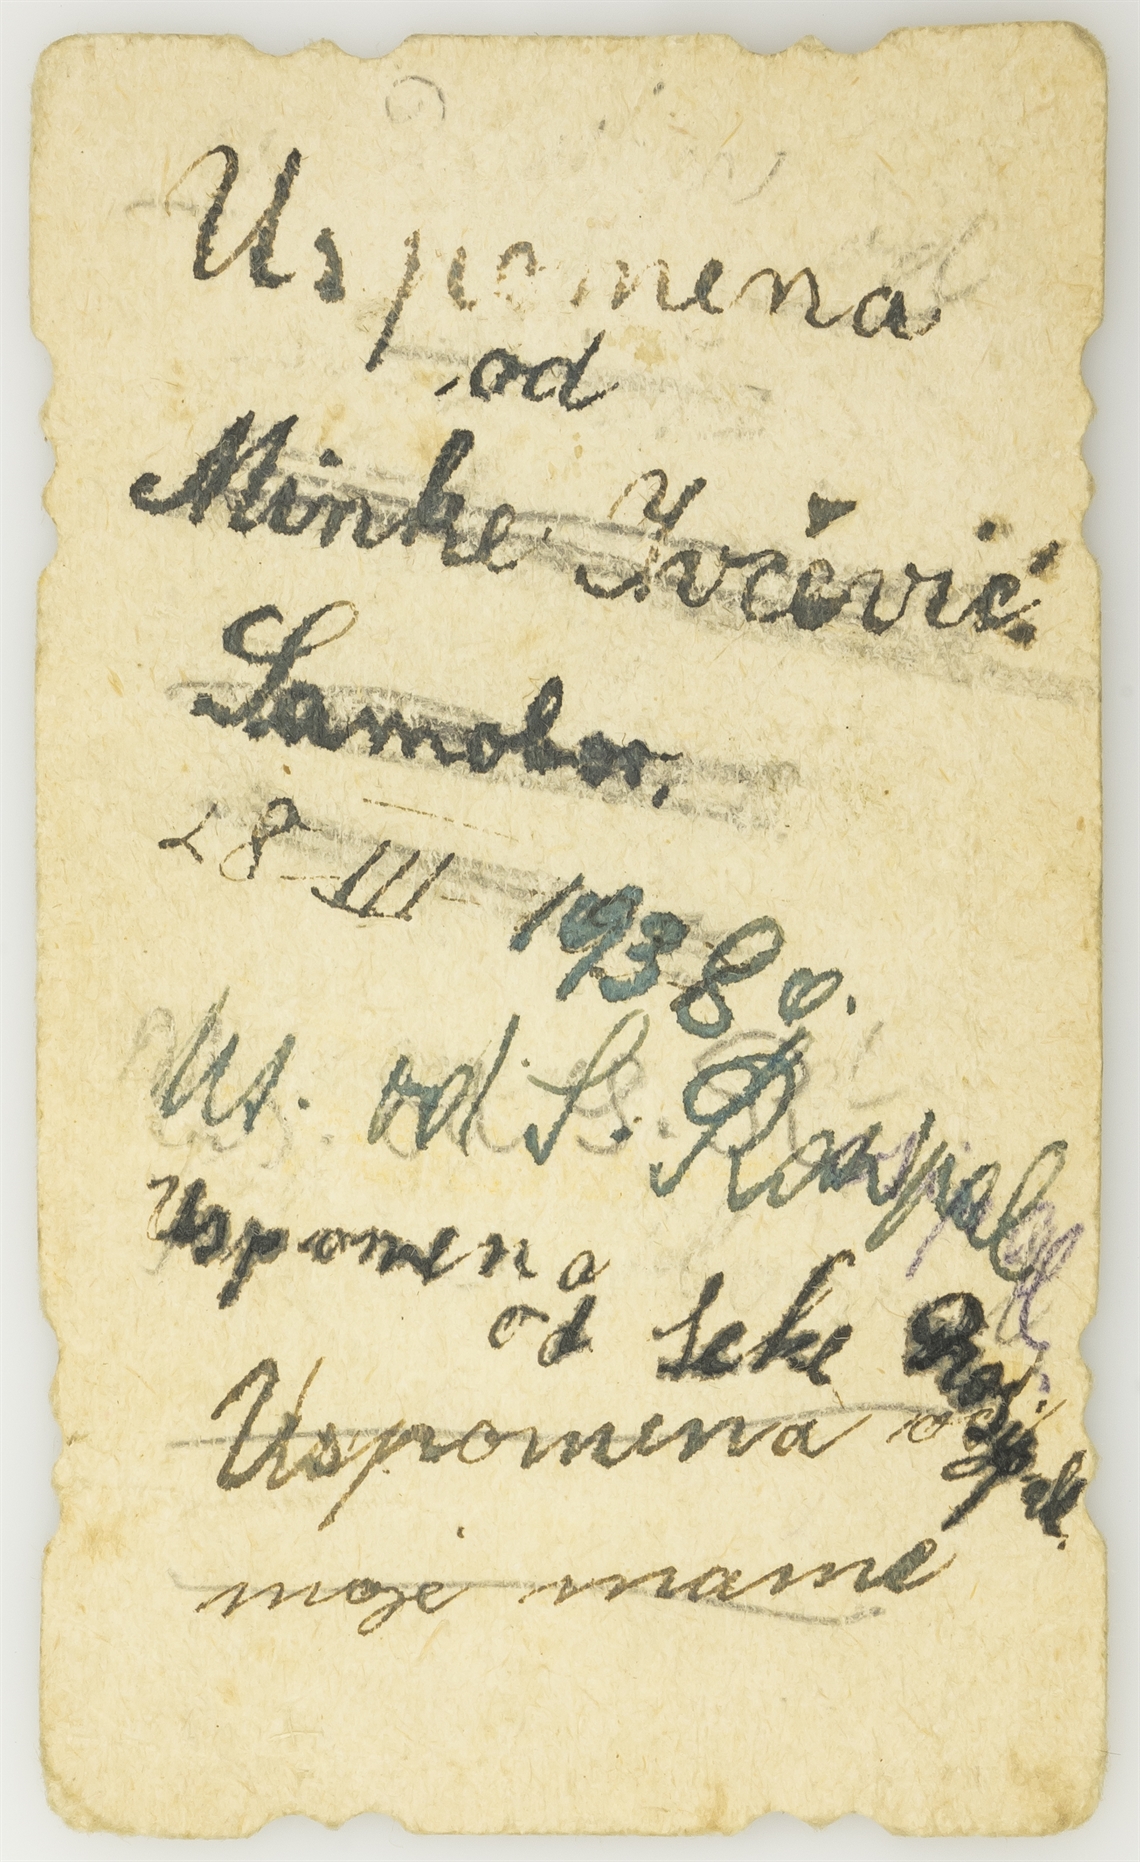 Uspomena
od
Minke Ivčević
Samobor.
28 III 1938 g.
Us. od S. Razpak
Uspomena
od Seke
Uspomena od
moje mame